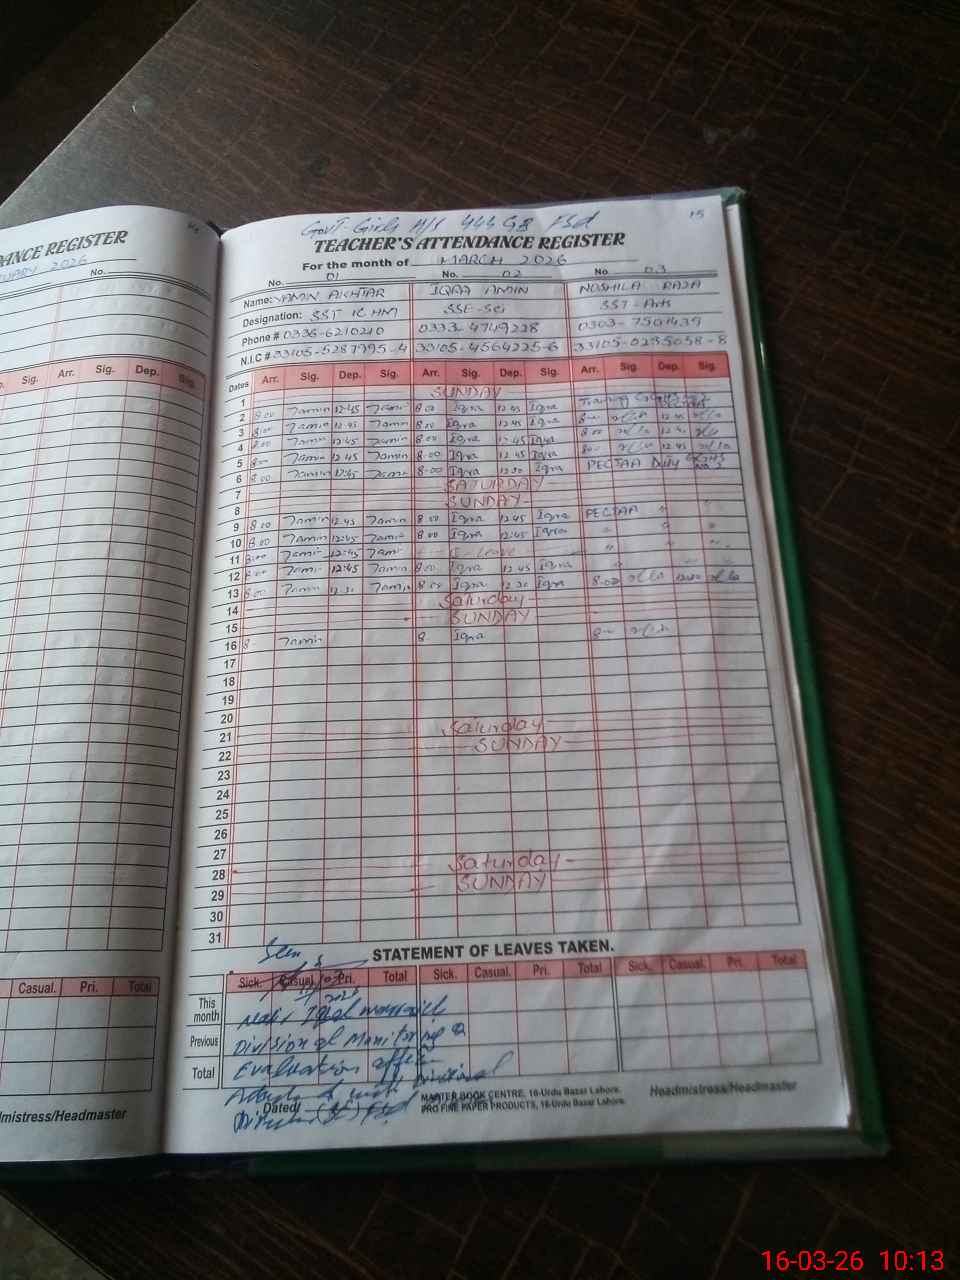 Govt-Girls H/S 444 GB FSd
15
TEACHER'S ATTENDANCE REGISTER
For the month of MARCH 2026
No. 01 No. 02 No. 03
Name: YAMIN AKHTAR IQRA AMIN NOSHILA RAZA
Designation: SST IC HM SSE-Sci SST-Arts
Phone # 0336-6210210 0333-4749228 0303-7501439
N.I.C # 33105-5287995-4 33105-4564225-6 33105-0235058-8
Dates Arr. Sig. Dep. Sig. Arr. Sig. Dep. Sig. Arr. Sig. Dep. Sig.
1 SUNDAY
2 8:00 Yamin 12:45 Yamin 8:00 Iqra 12:45 Iqra Training
3 8:00 Yamin 12:45 Yamin 8:00 Iqra 12:45 Iqra 8:00 12:45
4 8:00 Yamin 12:45 Yamin 8:00 Iqra 12:45 Iqra 8:00 12:45
5 8:00 Yamin 12:45 Yamin 8:00 Iqra 12:45 Iqra 8:00 12:45
6 8:00 Yamin 12:45 Yamin 8-00 Iqra 12:30 Iqra PECTAA Duty
7 SATURDAY
8 SUNDAY
9 8:00 Yamin 12:45 Yamin 8:00 Iqra 12:45 Iqra PECTAA "
10 8:00 Yamin 12:45 Yamin 8:00 Iqra 12:45 Iqra " " "
11 8:00 Yamin 12:45 Yamin - C-Leave - " " "
12 8:00 Yamin 12:45 Yamin 8:00 Iqra 12:45 Iqra " " "
13 8:00 Yamin 12:30 Yamin 8:00 Iqra 12:30 Iqra 8:00 12:30
14 Saturday
15 SUNDAY
16 8 Yamin 8 Iqra 8
17
18
19
20
21 Saturday
22 SUNDAY
23
24
25
26
27
28 Saturday
29 SUNDAY
30
31
STATEMENT OF LEAVES TAKEN.
Seen
Sick. Casual. Pri. Total Sick. Casual. Pri. Total Sick. Casual. Pri. Total
This month
Previous
Total
Division of Monitoring &
Evaluation
Dated
MASTER BOOK CENTRE, 16-Urdu Bazar Lahore.
PRO FINE PAPER PRODUCTS, 16-Urdu Bazar Lahore.
Headmistress/Headmaster
DANCE REGISTER
2026
No.
Arr. Sig. Dep. Sig.
Casual. Pri. Total
Headmistress/Headmaster
16-03-26 10:13